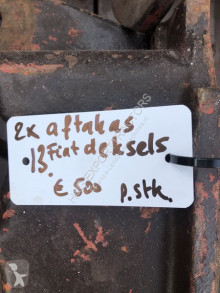 2x aftakas
13. Fiat deksels
€500 p.stk.